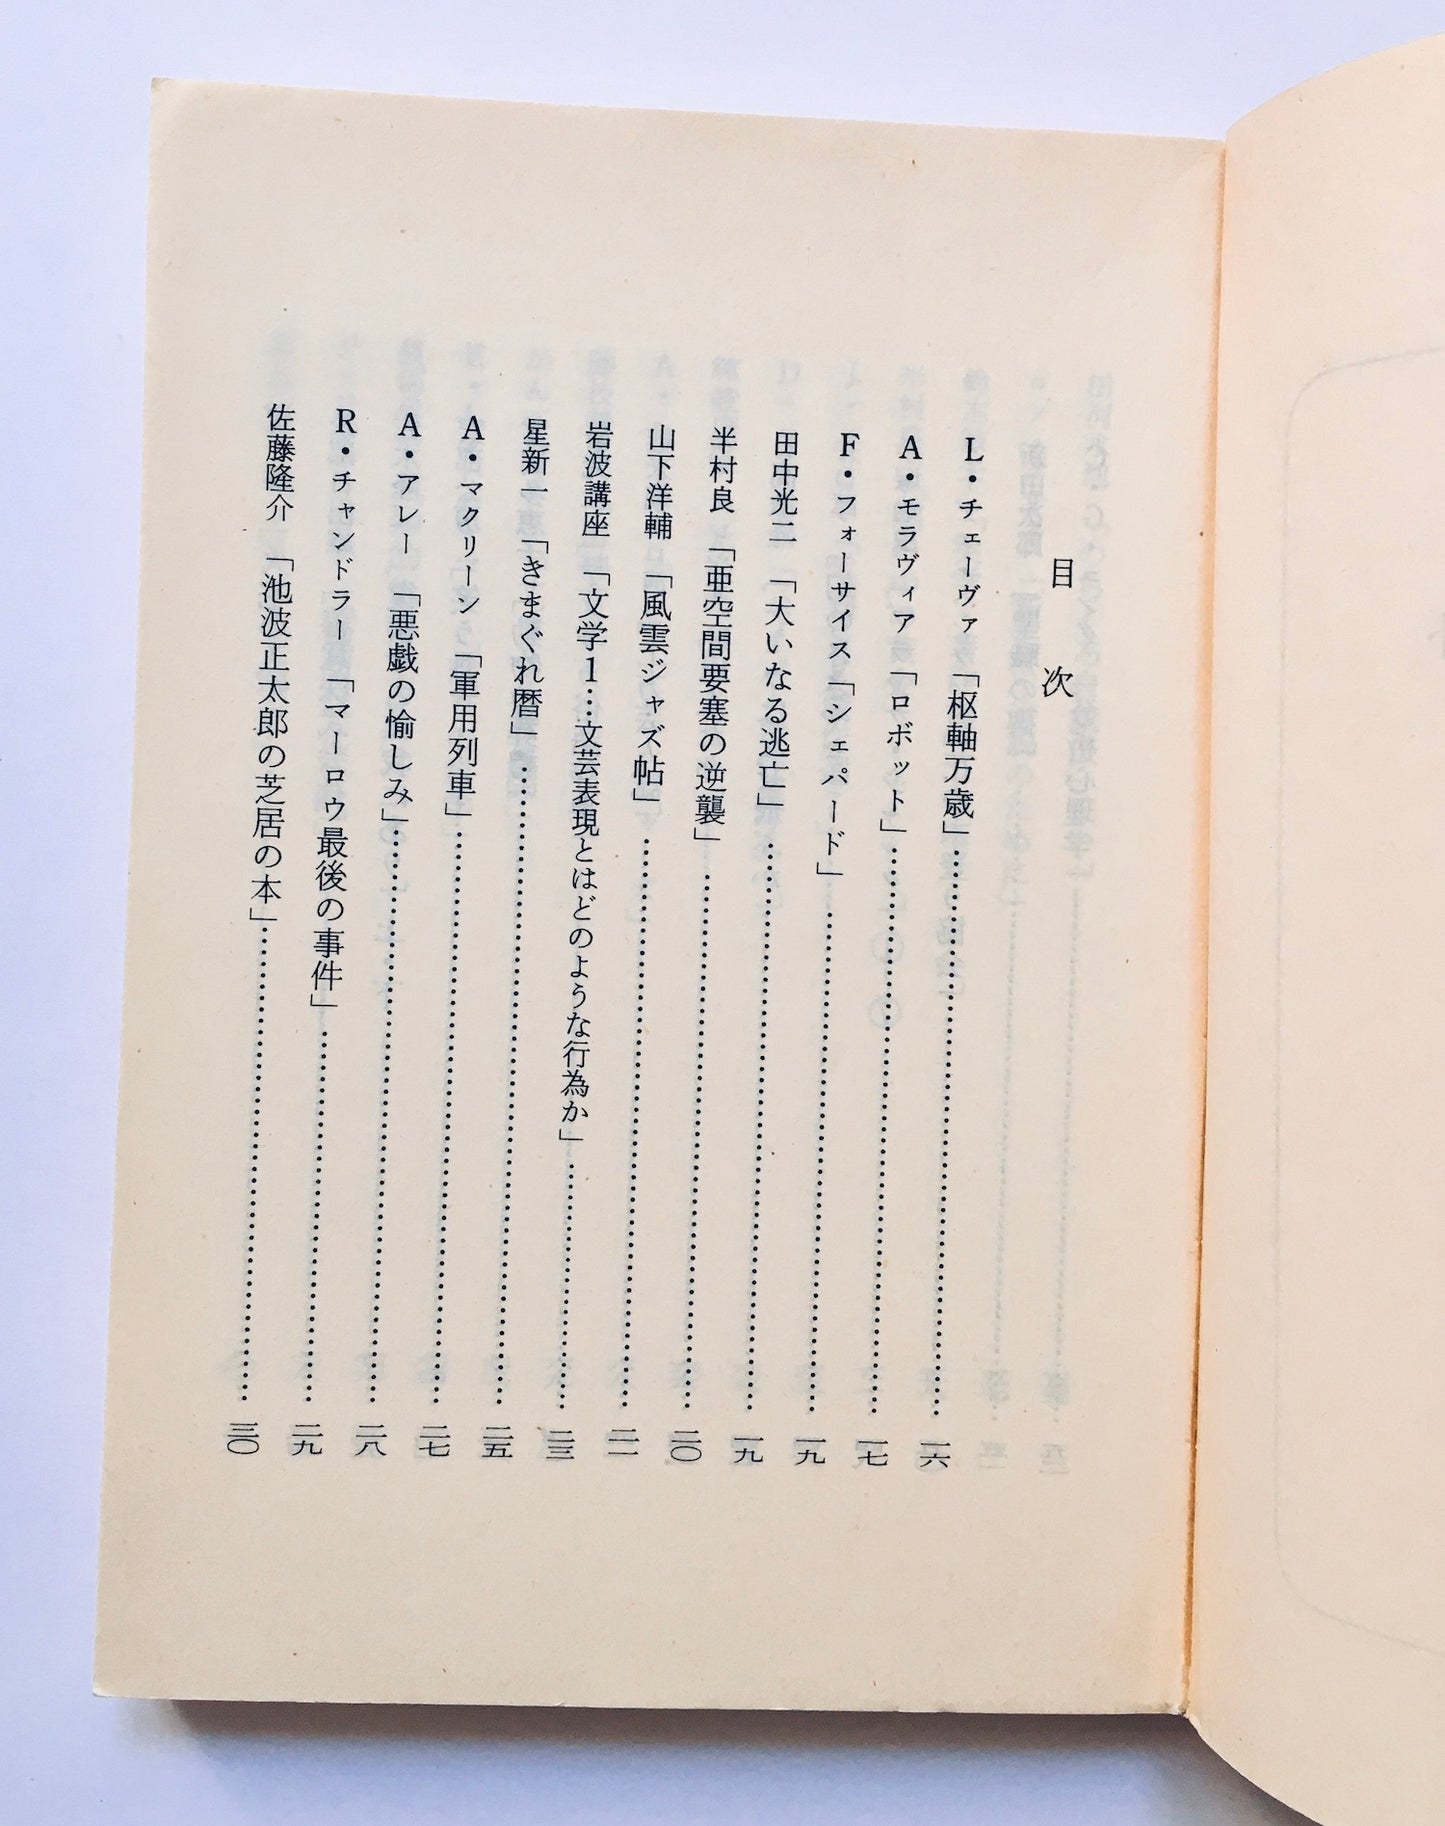 目次
L・チェーヴァ「枢軸万歳」……一六
A・モラヴィア「ロボット」……一七
F・フォーサイス「シェパード」……一九
田中光二「大いなる逃亡」……一九
半村良「亜空間要塞の逆襲」……二〇
山下洋輔「風雲ジャズ帖」……二一
岩波講座「文学1…文芸表現とはどのような行為か」……二三
星新一「きまぐれ暦」……二五
A・マクリーン「軍用列車」……二七
A・アレー「悪戯の愉しみ」……二八
R・チャンドラー「マーロウ最後の事件」……二九
佐藤隆介「池波正太郎の芝居の本」……三〇